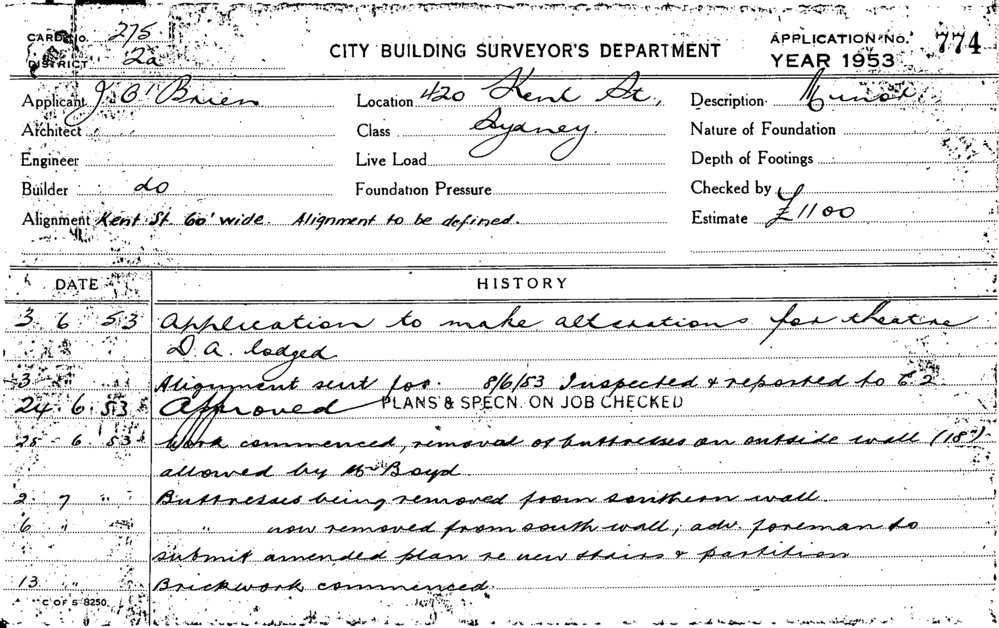 CARD No. 275
DISTRICT 2a
CITY BUILDING SURVEYOR'S DEPARTMENT
APPLICATION No. 774
YEAR 1953
Applicant J. O'Brien
Location 420 Kent St,
Description Minor
Architect
Class Sydney.
Nature of Foundation
Engineer
Live Load
Depth of Footings
Builder do
Foundation Pressure
Checked by
Alignment Kent St 60' wide. Alignment to be defined.
Estimate £1100
DATE HISTORY
3 6 53 Application to make alterations for theatre
D.A. lodged
3 Alignment sent for. 8/6/53 Inspected & reported to E.2
24. 6. 53 Approved PLANS & SPECN. ON JOB CHECKED
25 6 53 Work commenced, removal of buttresses on outside wall (18")
allowed by Mr Boyd.
2. 7 " Buttresses being removed from southern wall.
6 " " now removed from south wall, adv. foreman to
submit amended plan re new stairs & partition
13 " Brickwork commenced.
C OF S 8250.